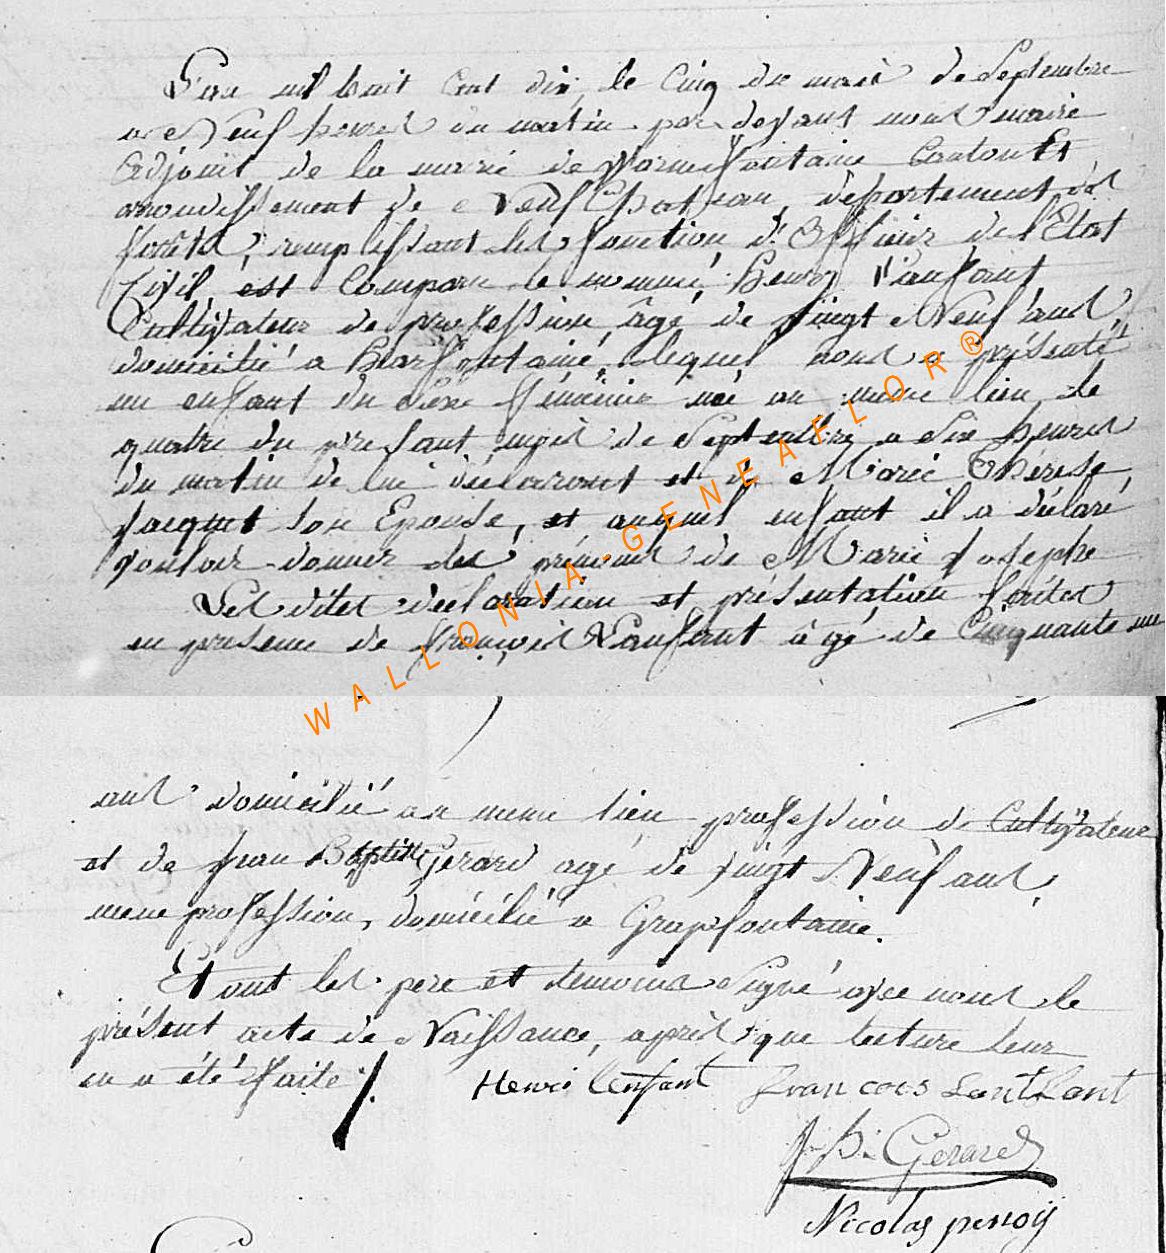 L'an mil huit Cent dix, le Cinq du mois de Septembre
a Neuf heures du matin par devant nous maire
Adjoint de la mairie de Warmifontaine Canton Et
arrondissement de Neufchateau, département des
forêts, remplissant les fonction d'Officier de l'Etat
Civil, est Comparu le nommé Henry L'enfant
Cultivateur de profession âgé de Vingt Neuf ans
domicilié a harfontaine, lequel nous a présenté
un enfant du Sexe féminin né au meme lieu le
quatre du présant mois de Septembre a Six heures
du matin de lui déclarant et de Marie Thérése
Jacquet son Epouse, et auquel enfant il a déclaré
vouloir donner les prénoms de Marie Josephe
Les dites déclaration et présentation faites
en presence de françois L'anfant âgé de Cinquante un
WALLONIA-GENEAFLOR®
ans domicilié au meme lieu profession de Cultivateur
et de Jean Baptiste Gerard agé de vingt Neuf ans,
meme profession, domicilié a Grapfontaine.
Et ont les pere et temoins Signé avec nous le
présent acte de Naissance, après que lecture leur
en a été faite /.
Henri lenfant Francois Lantfant
J. B. Gerard
Nicolas penoÿ